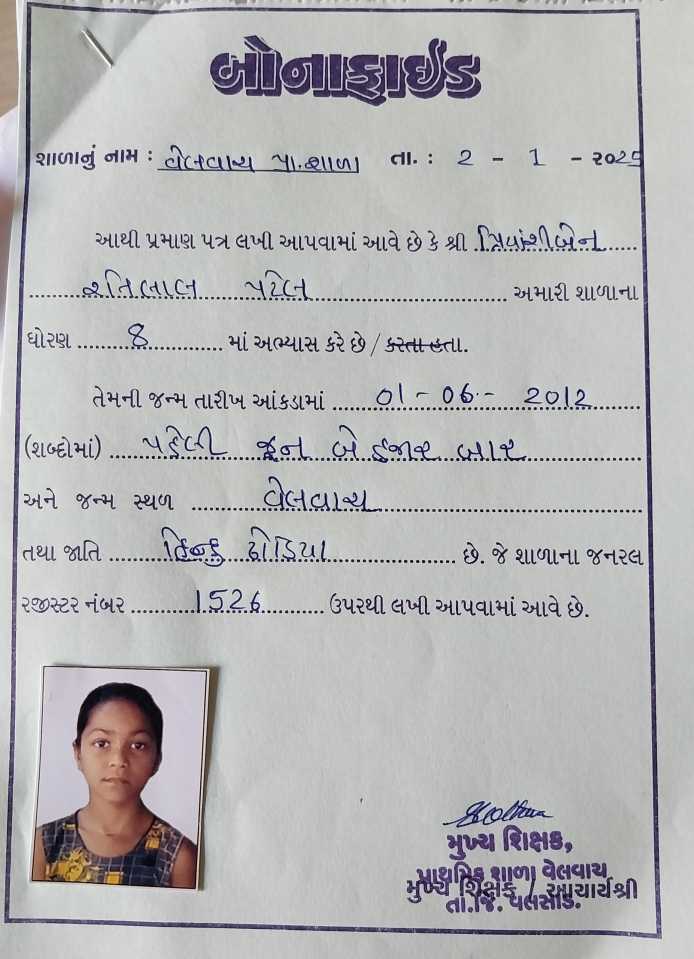 બોનાફાઈડ
શાળાનું નામ : વેલવાચ પ્રા.શાળા તા. : 2 - 1 - ૨૦25
આથી પ્રમાણ પત્ર લખી આપવામાં આવે છે કે શ્રી પ્રિયાંશીબેન
રતિલાલ પટેલ અમારી શાળાના
ધોરણ 8 માં અભ્યાસ કરે છે / કરતા હતા.
તેમની જન્મ તારીખ આંકડામાં 01 - 06 - 2012
(શબ્દોમાં) પહેલી જૂન બે હજાર બાર
અને જન્મ સ્થળ વેલવાચ
તથા જાતિ હિન્દુ ઢોડિયા છે. જે શાળાના જનરલ
રજીસ્ટર નંબર 1526 ઉપરથી લખી આપવામાં આવે છે.
મુખ્ય શિક્ષક,
પ્રાથમિક શાળા વેલવાચ
મુખ્ય શિક્ષક / આચાર્યશ્રી
તા.જિ. વલસાડ.